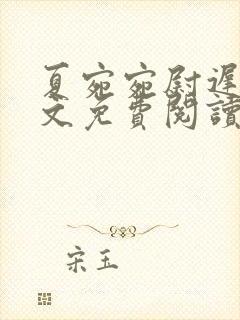 夏宛宛尉遲
文免費閱讀
宋玉